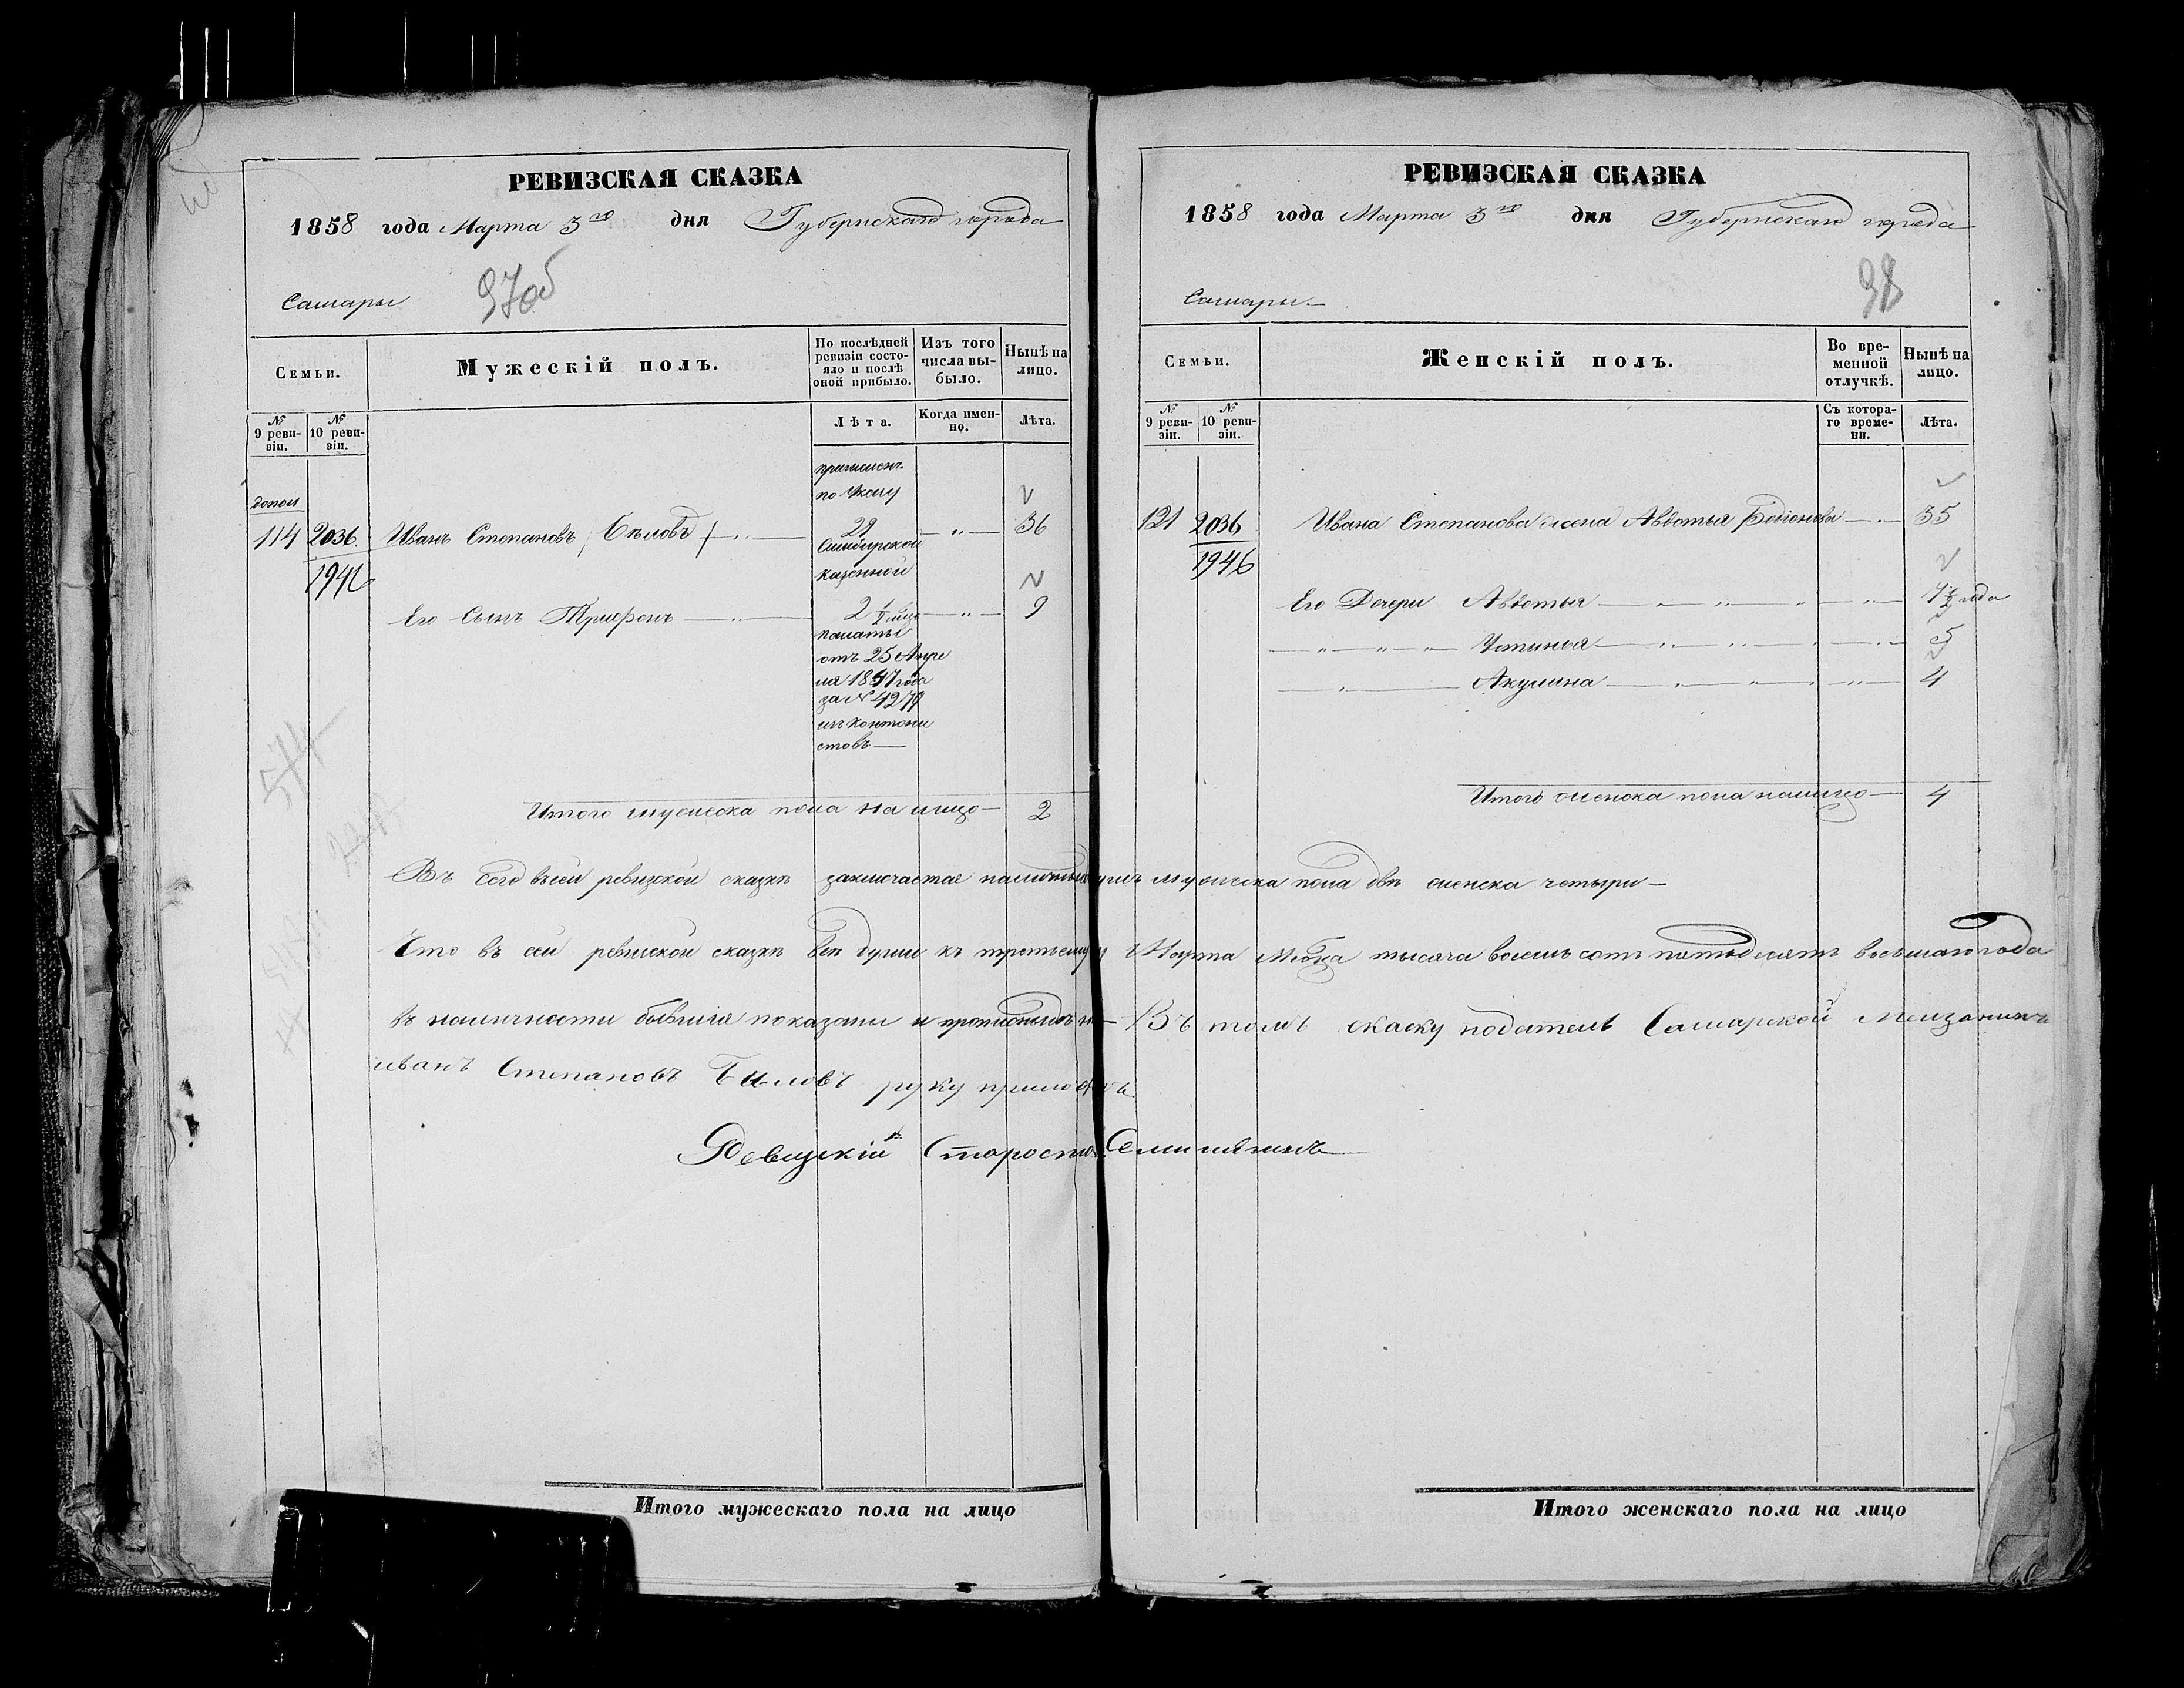 РЕВИЗСКАЯ СКАЗКА
1858 года Марта 3го дня Губернскаго города
Самары
97об
Семьи.
Мужескій полъ.
По послѣдней ревизіи состо-
яло и послѣ
оной прибыло.
Изъ того
числа вы-
было.
Нынѣ на
лицо.
№
9 реви-
зіи.
№
10 реви-
зіи.
Лѣта.
Когда имен-
но.
Лѣта.
причислен.
по указу
допол
114 2036 Иванъ Степановъ (Бѣловъ) 29 — " — 36
Симбирской
1946
казенной
Его Сынъ Трифонъ 2 — " — 9
палаты
отъ 25 Апре
ля 1847 года
за № 4279
изъ контони
стовъ
574
Итого мужеска пола на лицо — 2
РЕВИЗСКАЯ СКАЗКА
1858 года Марта 3го дня Губернскаго города
Самары.
98
Семьи.
Женскій полъ.
Во вре-
менной
отлучкѣ.
Нынѣ на
лицо.
№
9 реви-
зіи.
№
10 реви-
зіи.
Съ котора-
го време-
ни.
Лѣта.
121 2036 Ивана Степанова жена Авдотья 35
1946
Его Дочери Авдотья года
Устинья 5
Акулина 4
Итого женска пола налицо — 4
Въ сей ревизской сказкѣ заключается мужеска пола двѣ женска четыри —
Что въ сей ревизской сказкѣ всѣ души къ третьему Марта мѣсяца тысяча восемь сотъ пятьдесятъ восьмаго года
въ наличности бывшія показаны и Въ томъ скаску податель Самарской Мещанинъ
иванъ Степановъ Биловъ руку приложилъ
Ревизскій Староста
Итого мужескаго пола на лицо
Итого женскаго пола на лицо